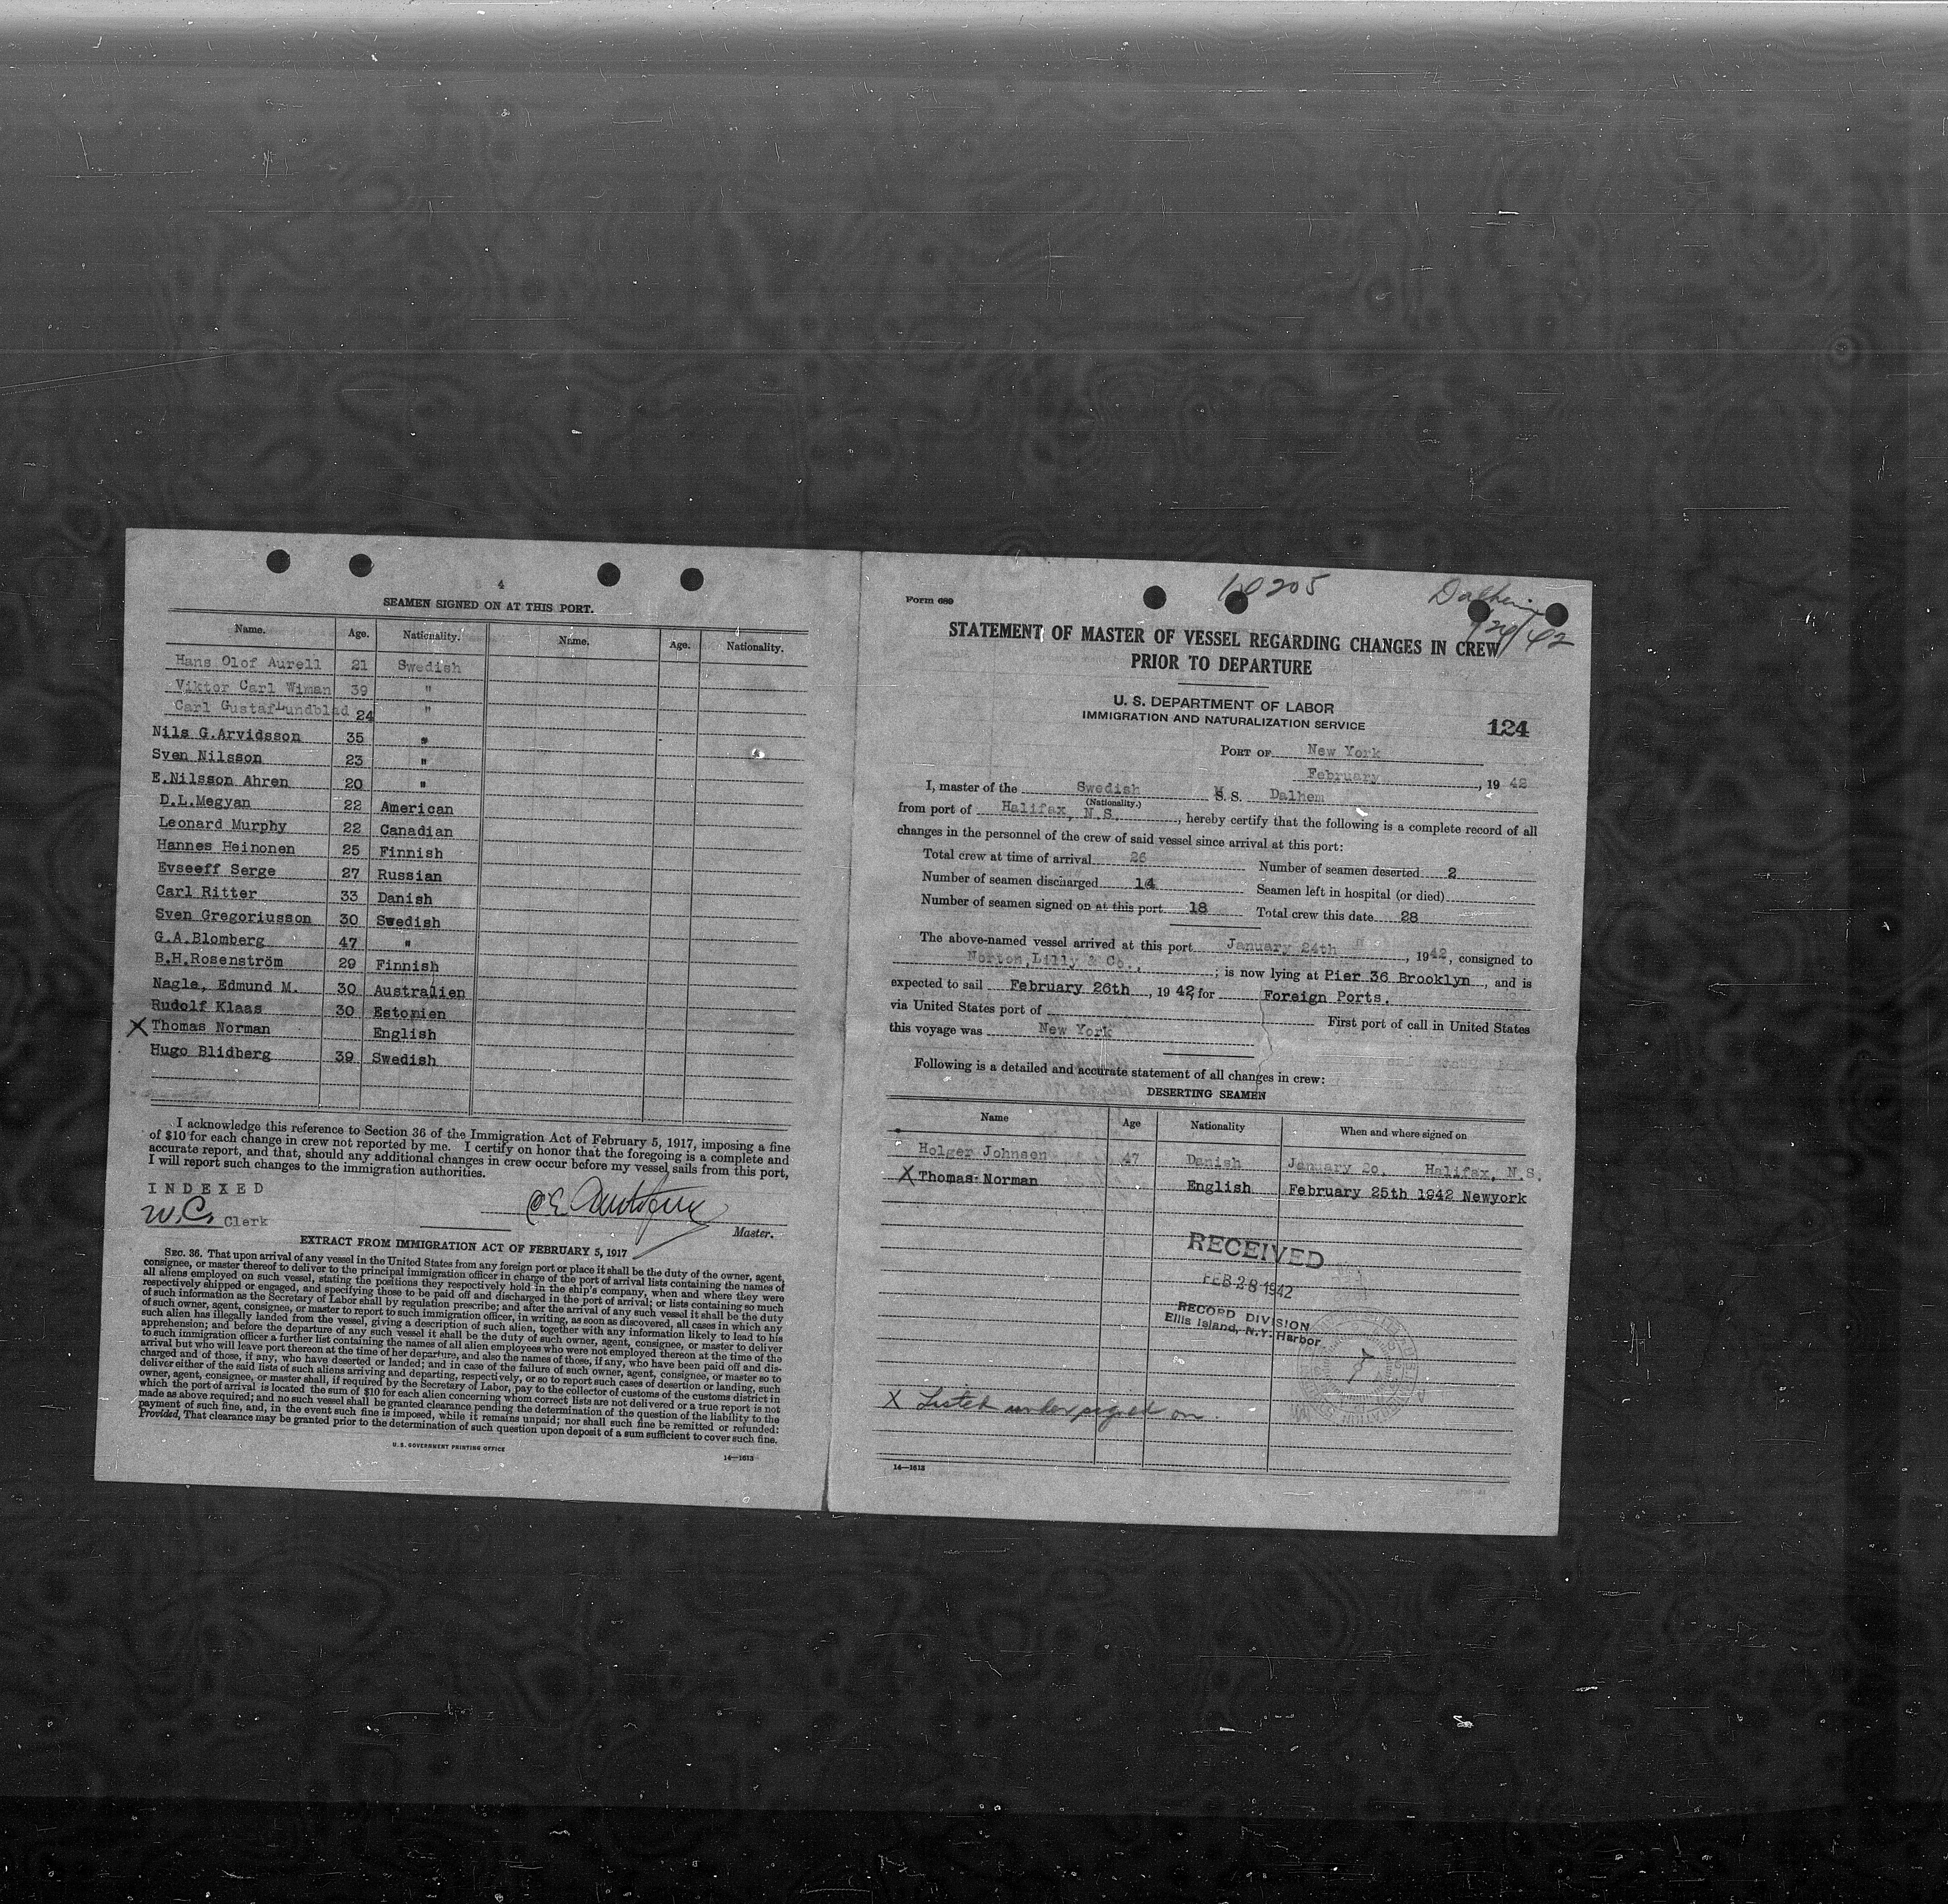 4
SEAMEN SIGNED ON AT THIS PORT.
Name. Age. Nationality. Name. Age. Nationality.
Hans Olof Aurell 21 Swedish
Viktor Carl Wiman 39 "
Carl Gustaf Lundblad 24 "
Nils G.Arvidsson 35 "
Sven Nilsson 23 "
E.Nilsson Ahren 20 "
D.L.Megyan 22 American
Leonard Murphy 22 Canadian
Hannes Heinonen 25 Finnish
Evseeff Serge 27 Russian
Carl Ritter 33 Danish
Sven Gregoriusson 30 Swedish
G.A.Blomberg 47 "
B.H.Rosenström 29 Finnish
Nagle, Edmund M. 30 Australien
Rudolf Klaas 30 Estonien
X Thomas Norman English
Hugo Blidberg 39 Swedish
I acknowledge this reference to Section 36 of the Immigration Act of February 5, 1917, imposing a fine
of $10 for each change in crew not reported by me. I certify on honor that the foregoing is a complete and
accurate report, and that, should any additional changes in crew occur before my vessel sails from this port,
I will report such changes to the immigration authorities.
INDEXED
W.C. Clerk
Master.
EXTRACT FROM IMMIGRATION ACT OF FEBRUARY 5, 1917
SEC. 36. That upon arrival of any vessel in the United States from any foreign port or place it shall be the duty of the owner, agent,
consignee, or master thereof to deliver to the principal immigration officer in charge of the port of arrival lists containing the names of
all aliens employed on such vessel, stating the positions they respectively hold in the ship's company, when and where they were
respectively shipped or engaged, and specifying those to be paid off and discharged in the port of arrival; or lists containing so much
of such information as the Secretary of Labor shall by regulation prescribe; and after the arrival of any such vessel it shall be the duty
of such owner, agent, consignee, or master to report to such immigration officer, in writing, as soon as discovered, all cases in which any
such alien has illegally landed from the vessel, giving a description of such alien, together with any information likely to lead to his
apprehension; and before the departure of any such vessel it shall be the duty of such owner, agent, consignee, or master to deliver
to such immigration officer a further list containing the names of all alien employees who were not employed thereon at the time of the
arrival but who will leave port thereon at the time of her departure, and also the names of those, if any, who have been paid off and dis-
charged and of those, if any, who have deserted or landed; and in case of the failure of such owner, agent, consignee, or master so to
deliver either of the said lists of such aliens arriving and departing, respectively, or so to report such cases of desertion or landing, such
owner, agent, consignee, or master shall, if required by the Secretary of Labor, pay to the collector of customs of the customs district in
which the port of arrival is located the sum of $10 for each alien concerning whom correct lists are not delivered or a true report is not
made as above required; and no such vessel shall be granted clearance pending the determination of the question of the liability to the
payment of such fine, and, in the event such fine is imposed, while it remains unpaid; nor shall such fine be remitted or refunded:
Provided, That clearance may be granted prior to the determination of such question upon deposit of a sum sufficient to cover such fine.
U. S. GOVERNMENT PRINTING OFFICE
14—1613
Form 689
STATEMENT OF MASTER OF VESSEL REGARDING CHANGES IN CREW
PRIOR TO DEPARTURE
U. S. DEPARTMENT OF LABOR
IMMIGRATION AND NATURALIZATION SERVICE
124
PORT OF New York
February, 1942
I, master of the Swedish M S. S. Dalhem
(Nationality.)
from port of Halifax, N.S., hereby certify that the following is a complete record of all
changes in the personnel of the crew of said vessel since arrival at this port:
Total crew at time of arrival 26 Number of seamen deserted 2
Number of seamen discharged 14 Seamen left in hospital (or died)
Number of seamen signed on at this port 18 Total crew this date 28
The above-named vessel arrived at this port January 24th, 1942, consigned to
Norton,Lilly & Co., ; is now lying at Pier 36 Brooklyn, and is
expected to sail February 26th, 1942, for Foreign Ports.
via United States port of First port of call in United States
this voyage was New York
Following is a detailed and accurate statement of all changes in crew:
DESERTING SEAMEN
Name Age Nationality When and where signed on
Holger Johnsen 47 Danish January 2o, Halifax, N.S.
X Thomas Norman English February 25th 1942 Newyork
RECEIVED
FEB 28 1942
RECORD DIVISION
Ellis Island, N.Y. Harbor
X Listed under signed on.
14—1613